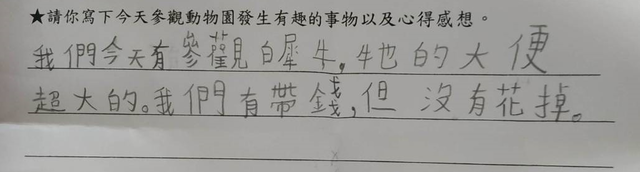 ★請你寫下今天參觀動物園發生有趣的事物以及心得感想。
我們今天有參觀白犀牛,牠的大便
超大的。我們有帶錢,但沒有花掉。